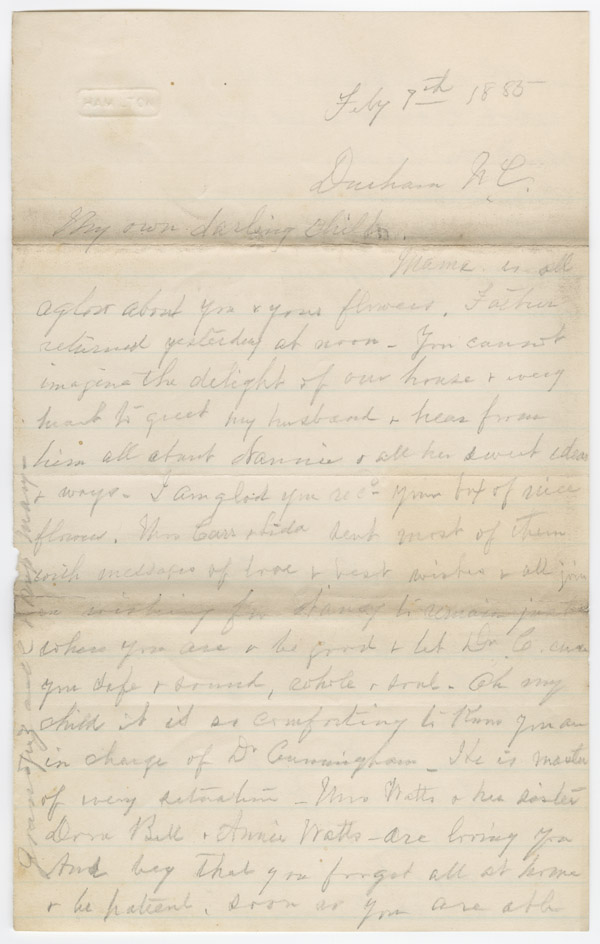 HAMILTON
Feby 7th 1885
Durham N.C.
My own darling child.
Mama is all
aglow about you & your flowers. Father
returned yesterday at noon - You cannot
imagine the delight of our house & every
heart to greet my husband & hear from
him all about Nannie & all her sweet ideas
& ways - I am glad you recd your box of nice
flowers. Mrs Carr & Lida sent most of them
with messages of love & best wishes & all join
in wishing for Nancy to remain just
where you are & be good & let Dr C. cure
you safe & sound, whole & soul - Oh my
child it is so comforting to know you are
in charge of Dr Cunningham - He is master
of every situation - Mrs Watts & her sister
Dora Bell & Annie Watts - are loving you
And beg that you forget all at home
& be patient. soon as you are able